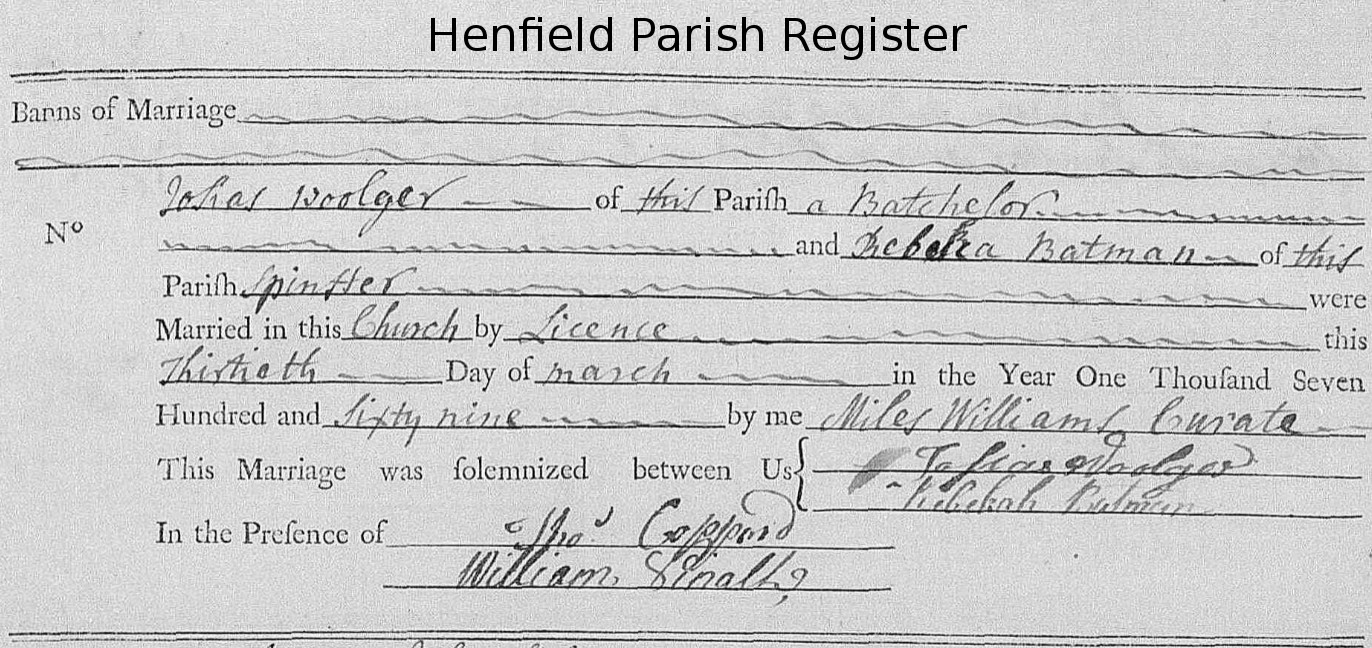 Henfield Parish Register
Banns of Marriage
Josias Woolger of this Pariſh a Batchelor
Nº
and Rebekra Batman of this
Pariſh Spinster were
Married in this Church by Licence this
Thirtieth Day of march in the Year One Thouſand Seven
Hundred and Sixty nine by me Miles Williams Curate
This Marriage was ſolemnized between Us Josias Woolger
Rebekah Batman
In the Preſence of Thos Coppard
William